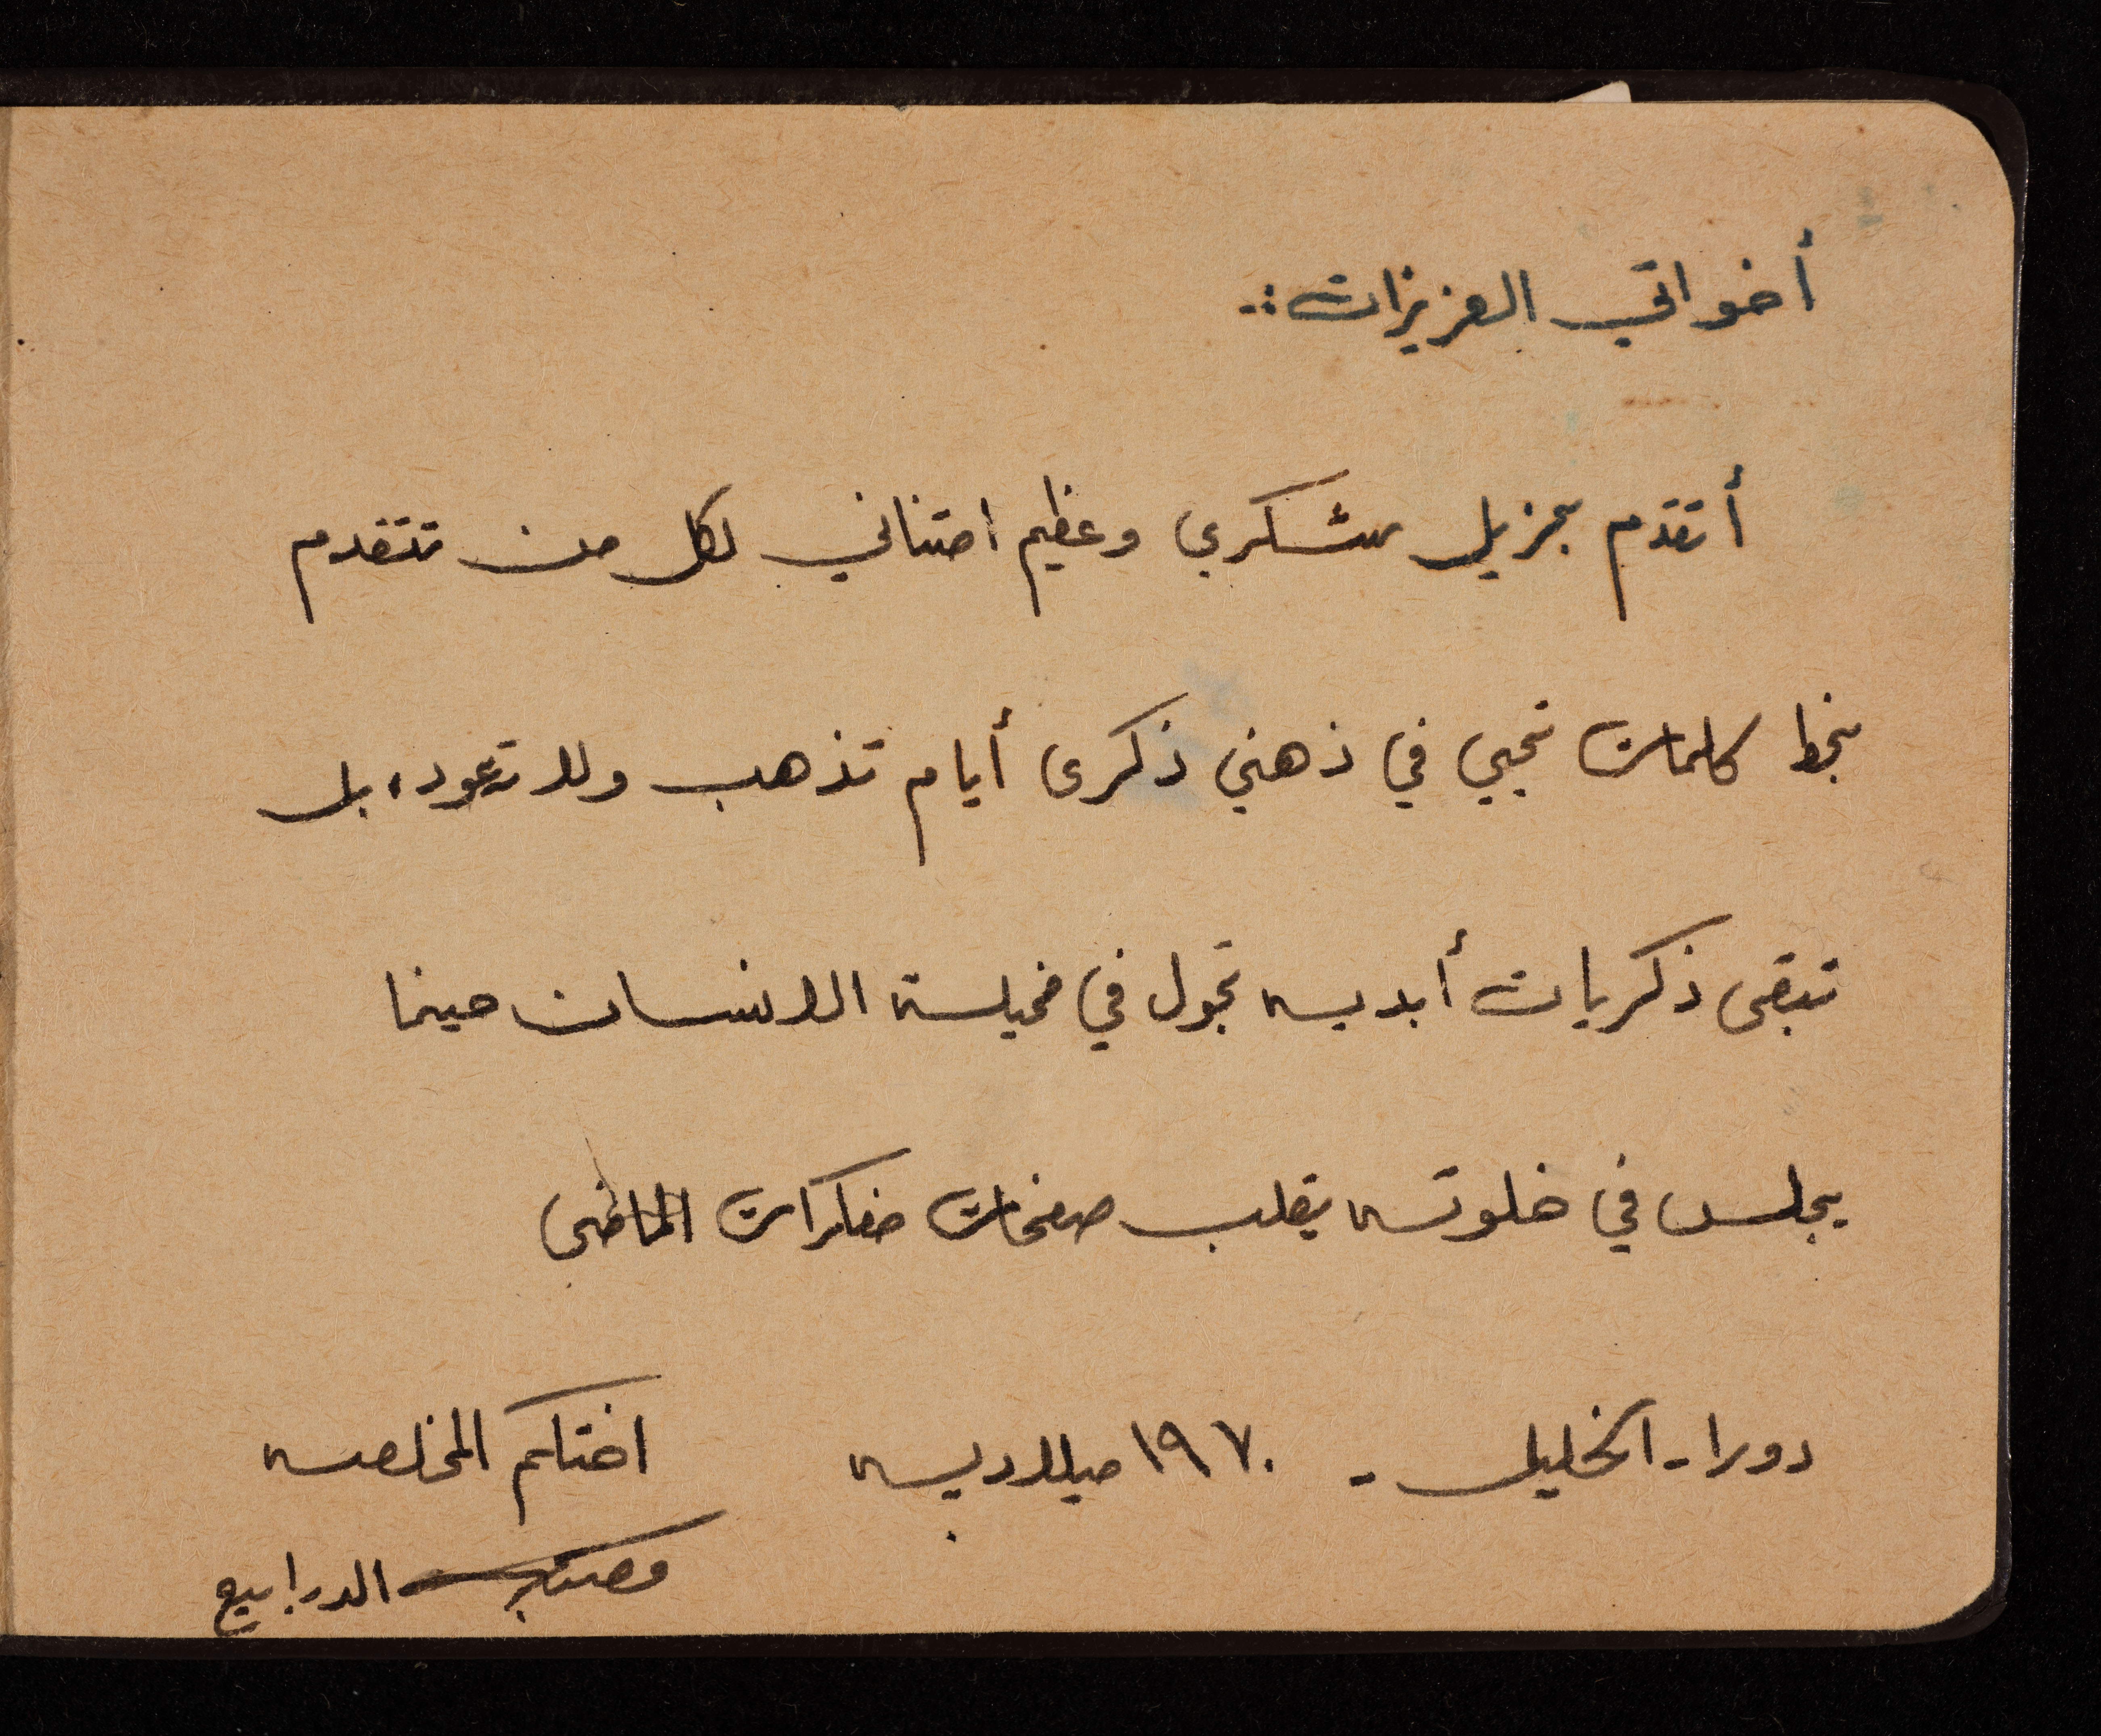 أخواتي العزيزات :ـ
أتقدم بجزيل شكري وعظيم امتناني لكل من تتقدم
بخط كلمات تحيي في ذهني ذكرى أيام تذهب ولا تعود، بل
تبقى ذكريات أبديه تجول في مخيلة الانسان حينما
يجلس في خلوته يقلب صفحات مفكرات الماضي
دورا - الخليل - ١٩٧٠ ميلاديه اختكم المخلصه
الدرابيع